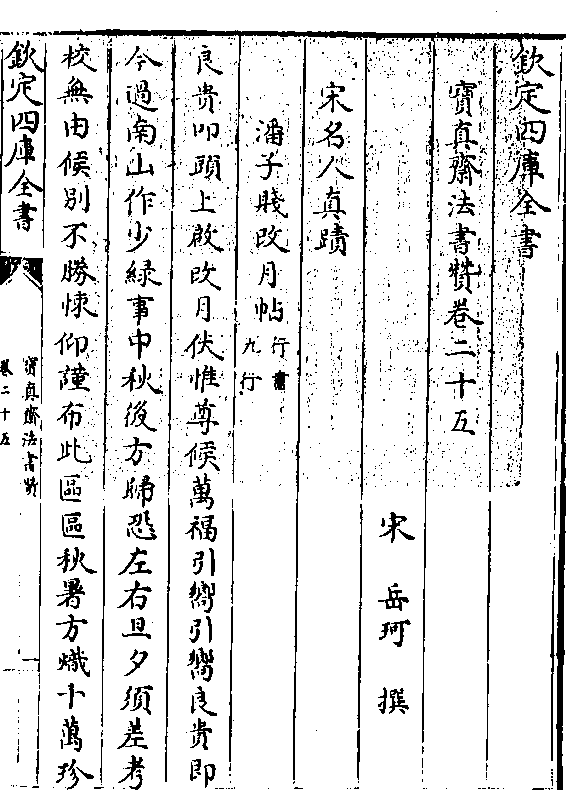 欽定四庫全書
寶真齋法書贊卷二十五
宋 岳珂 撰
宋名人真蹟
潘子賤改月帖行書九行
良貴叩頭上啟改月伏惟尊候萬福引嚮引嚮良貴即
今過南山作少緑事中秋後方歸恐左右旦夕須差考
校無由候别不勝悚仰謹布此區區秋暑方熾十萬珍
欽定四庫全書
寶真齋法書贊
卷二十五
一